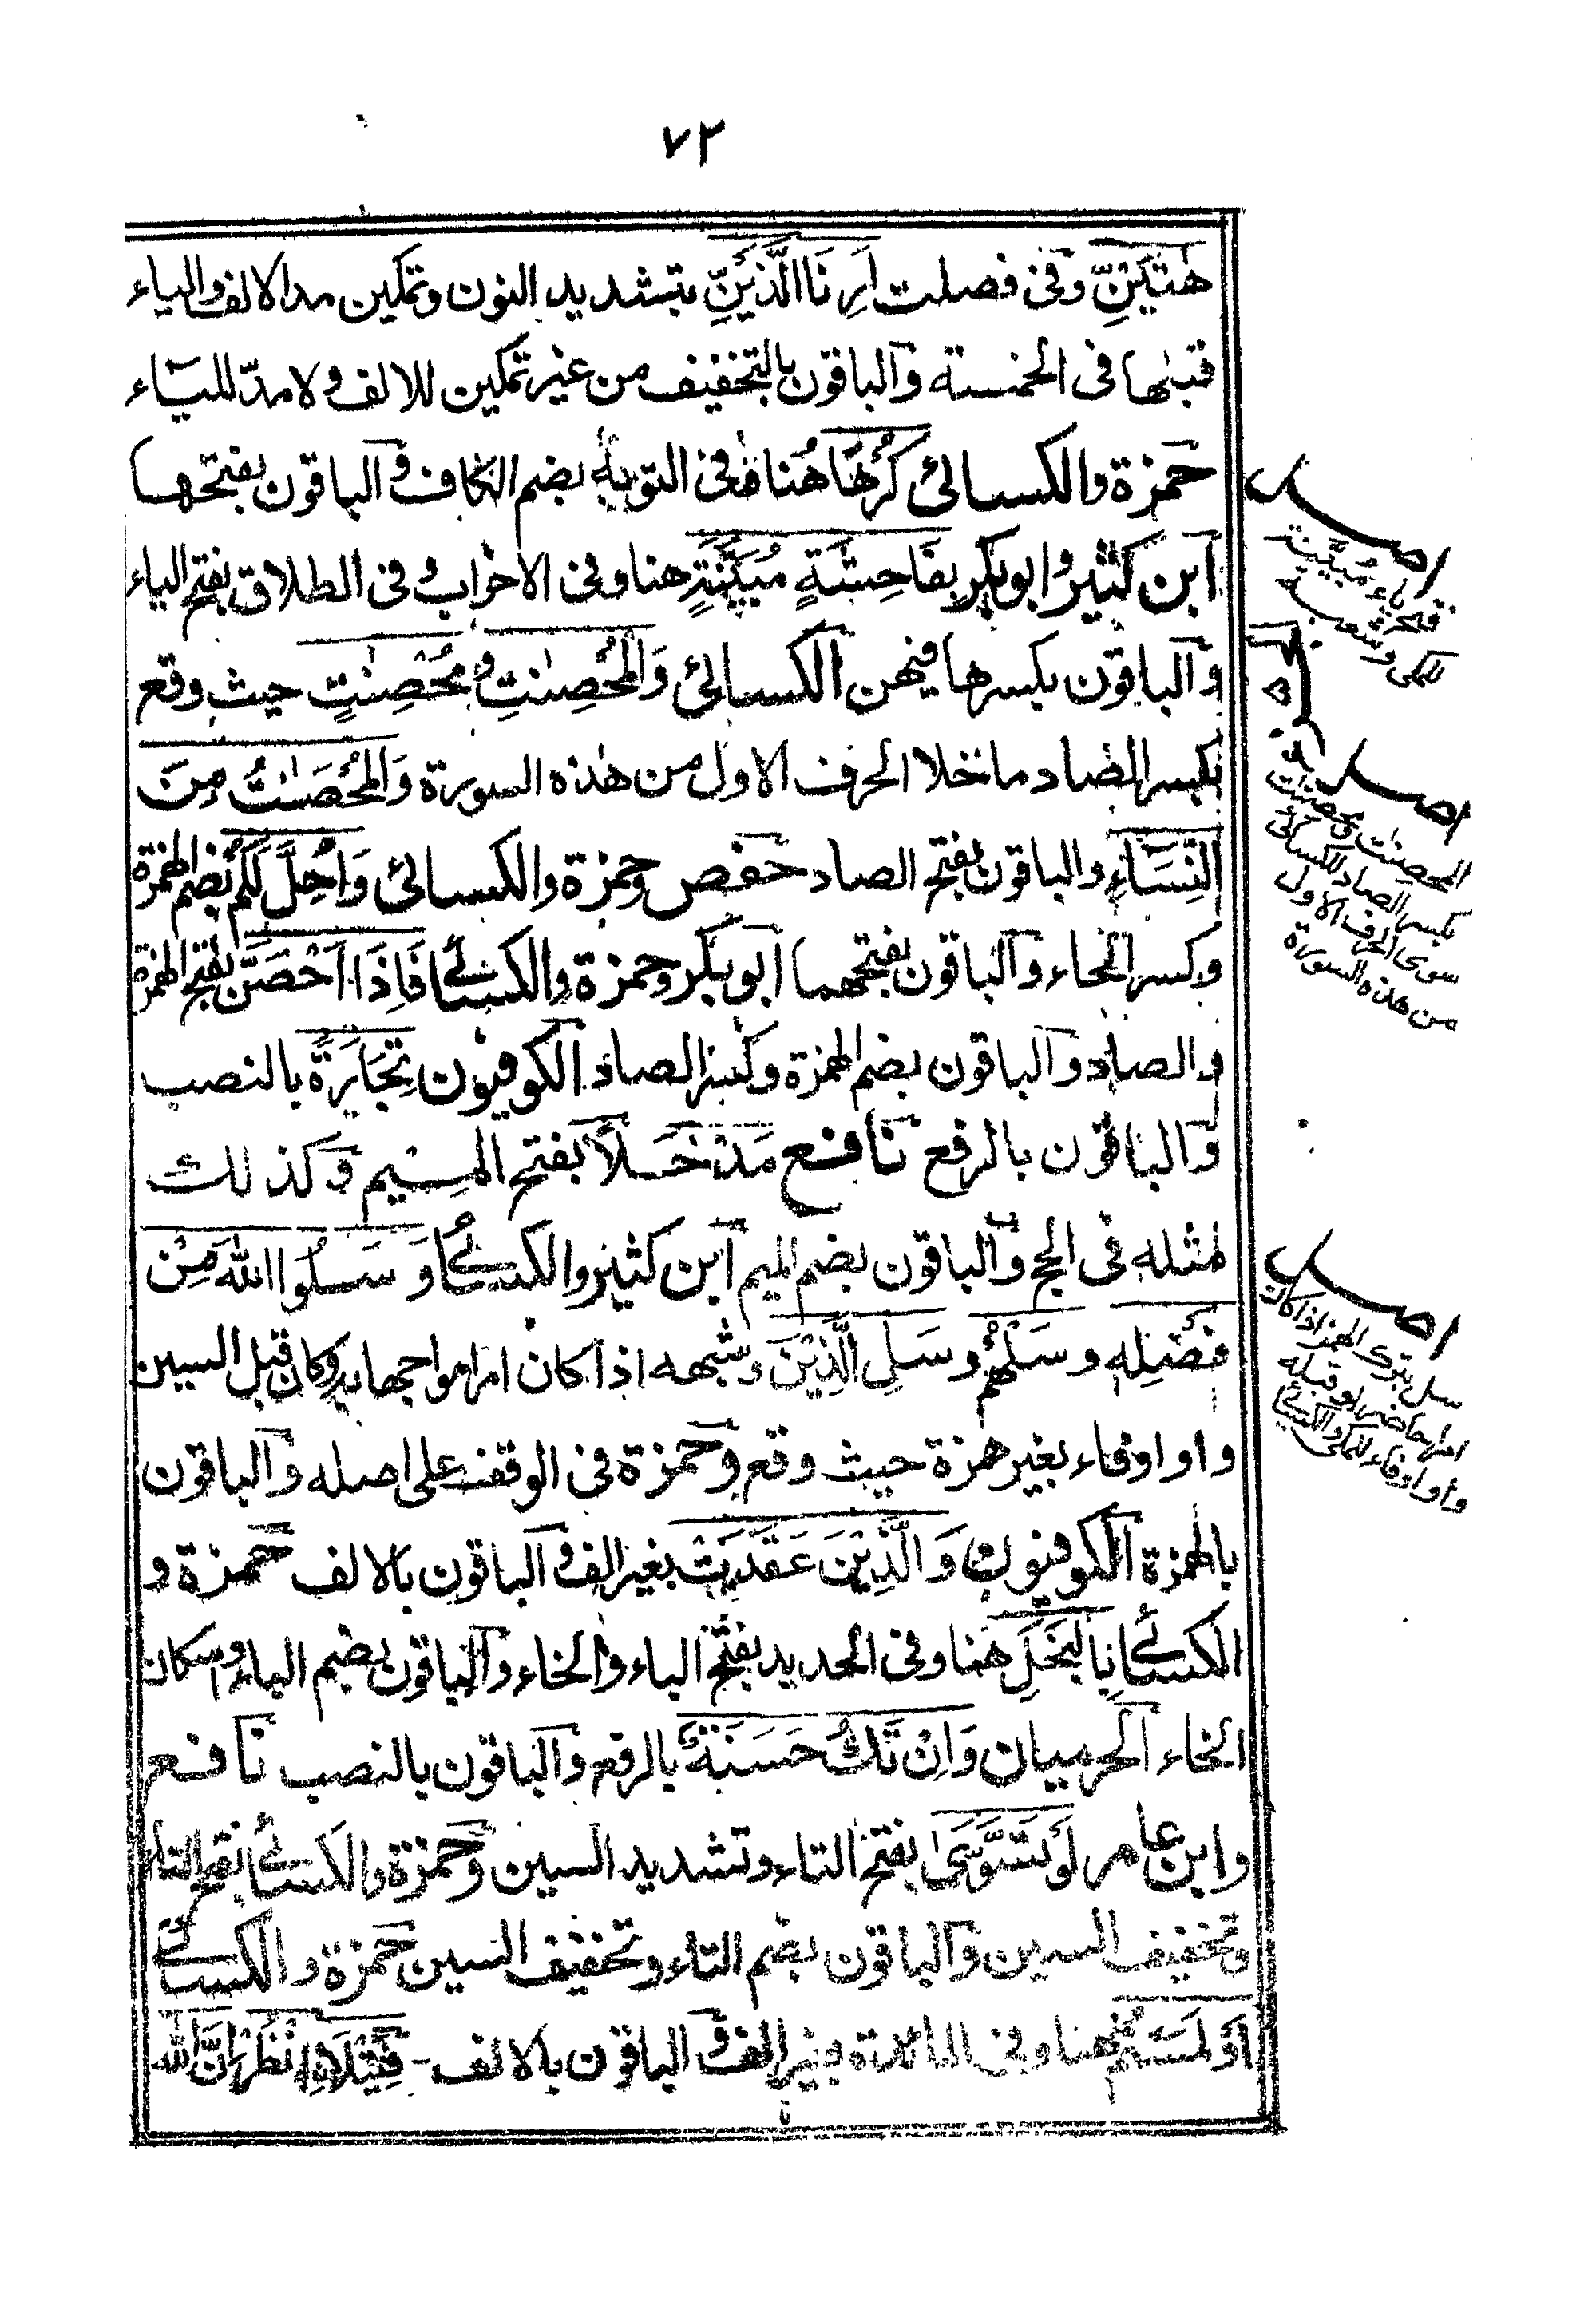 ٧٢
هٰتَيْنِّ وفى فصلت اَرِنَا الَّذَيْنِّ بتشديد النون وتمكين مد الالف والياء
قبلها فى الخمسة والباقون بالتخفيف من غير تمكين للالف ولا مدّ للياء
حمزة والكسائى كُرْهًا هُنا وفى التوبة بضم الكاف والباقون بفتحها
ابن كثير وابو بكر بِفَاحِشَةٍ مُبَيَّنَةٍ هنا وفى الاحزاب وفى الطلاق بفتح الياء
والباقون بكسرها فيهن الكسائى وَالْمُحْصِنٰتِ وَمُحْصِنٰتٍ حيث وقع
بكسر الصاد ما خلا الحرف الاول من هٰذه السورة وَالْمُحْصَنٰتُ مِنَ
النِّسَآءِ والباقون بفتح الصاد حفص وحمزة والكسائى وَاُحِلَّ لَكُمْ بضم الهمزة
وكسر الحاء والباقون بفتحهما ابو بكر وحمزة والكسائى فَاِذَا اَحْصَنَّ بفتح الهمزة
والصاد والباقون بضم الهمزة وكسر الصاد الكوفيون تِجَارَةً بالنصب
والباقون بالرفع نافع مَدْخَلًا بفتح الميم وكذلك
مثله فى الحج والباقون بضم الميم ابن كثير والكسائى وَسَلُوا اللّٰهَ مِنْ
فَضْلِهٖ وسَلْهُمْ وسَلِ الَّذِيْنَ وشبهه اذا كان امرا مواجها به وكان قبل السين
واو او فاء بغير همزة حيث وقع وحمزة فى الوقف على اصله والباقون
بالهمزة الكوفيون وَالَّذِيْنَ عَقَدَتْ بغير الف والباقون بالالف حمزة و
الكسائى بِالْبَخَلِ هنا وفى الحديد بفتح الباء والخاء والباقون بضم الباء واسكان
الخاء الحرميان وَاِنْ تَكُ حَسَنَةٌ بالرفع والباقون بالنصب نافع
وابن عامر لَوْ تَسَّوّٰى بفتح التاء وتشديد السين وحمزة والكسائى بفتح التاء
وتخفيف السين والباقون بضم التاء وتخفيف السين حمزة والكسائى
اَوْ لَمَسْتُمْ هنا وفى المائدة بغير الف والباقون بالالف - فَتِيْلَاۨ انْظُرْ اِنَّ اللّٰه
اصل
فتح ياء مُبَيَّنة
للمكى وشعبة
اصل
المحصنات ومحصنات
بكسر الصاد للكسائى
سوى الحرف الاول
من هذه السورة
اصل
سل بترك الهمز اذا كان
امرا حاضرا وقبله
واو او فاء للمكى والكسائى